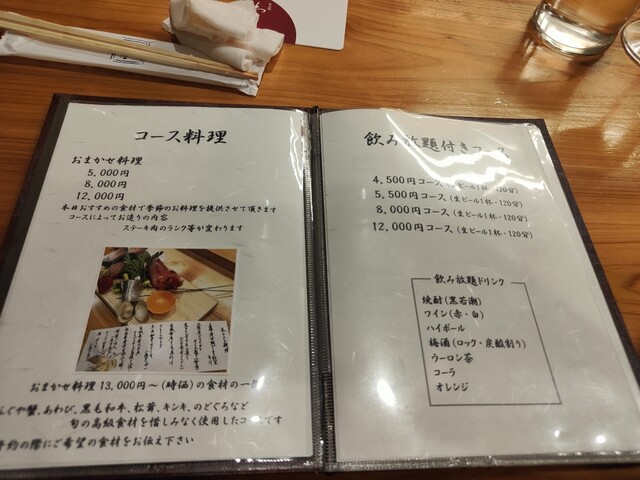 コース料理
おまかせ料理
5,000円
8,000円
12,000円
本日おすすめの食材で季節のお料理を提供させて頂きます
コースによってお造りの内容
ステーキ肉のランク等が変わります
おまかせ料理 13,000円～(時価)の食材の一例
ふぐや蟹、あわび、黒毛和牛、松茸、キンキ、のどぐろなど
旬の高級食材を惜しみなく使用したコースです
予約の際にご希望の食材をお伝え下さい
飲み放題付きコース
4,500円コース(生ビール1杯・120分)
5,500円コース(生ビール1杯・120分)
8,000円コース(生ビール1杯・120分)
12,000円コース(生ビール1杯・120分)
飲み放題ドリンク
焼酎(黒若潮)
ワイン(赤・白)
ハイボール
梅酒(ロック・炭酸割り)
ウーロン茶
コーラ
オレンジ